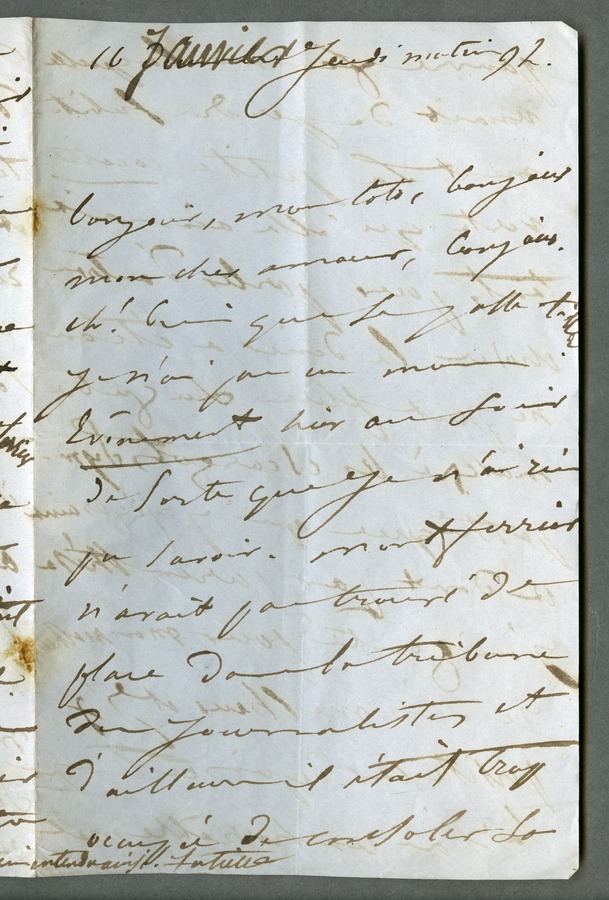 16 Janvier Jeudi matin 9h.
bonjour, mon toto, bonjour
mon cher amour, bonjour.
eh! bien que se passe-t-il
je n'ai pas eu mon
Evènement hier au soir
de sorte que je n'ai rien
pu savoir. Montferrier
n'avait pas trouvé de
place dans la tribune
des journalistes et
d'ailleurs il était trop
occupé de consoler sa